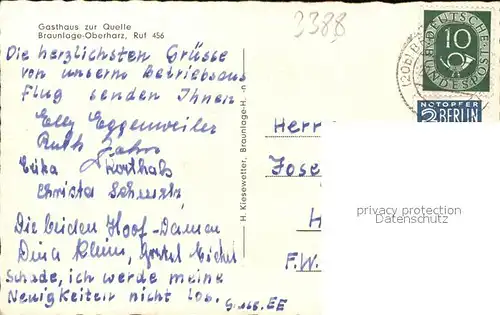 Gasthaus zur Quelle
Braunlage-Oberharz, Ruf 456
3388
Die herzlichsten Grüsse
von unserm Betriebsaus
flug senden Ihnen
Elly Eggenweiler
Ruth Jahns
Erika Korthals
Christa
Die beiden Hoof-Damen
Dina Klein, Michel
Schade, ich werde meine
Neuigkeiten nicht los.
H. Kiesewetter, Braunlage-H.
Herr
Jose
H
F.W.
DEUTSCHE BUNDESPOST
10
NOTOPFER
2 BERLIN
(20b) B
privacy protection
Datenschutz